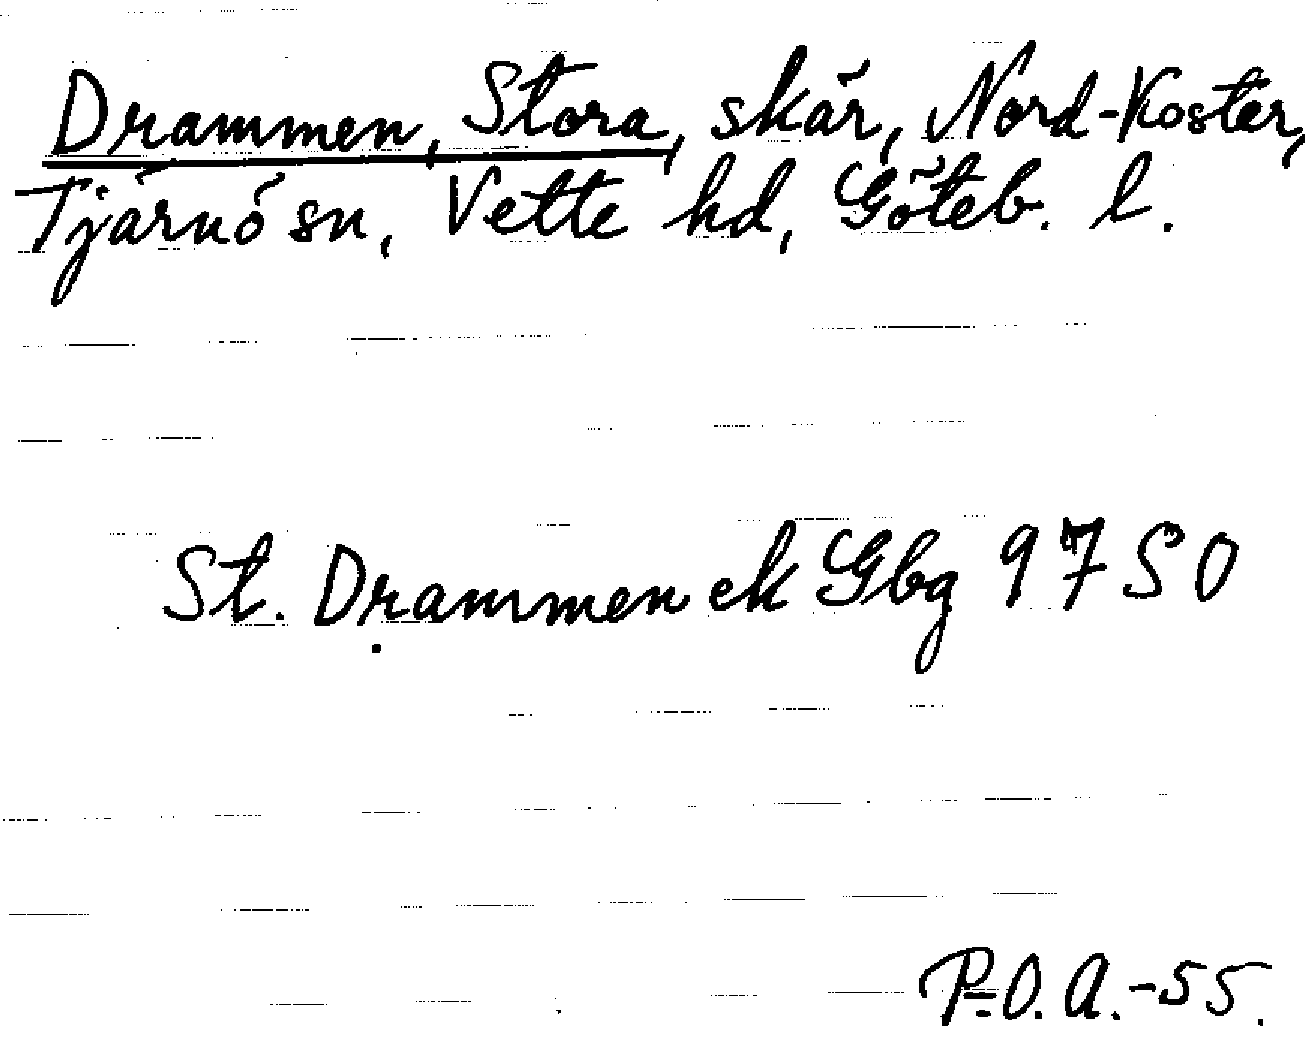 Drammen, Stora, skär, Nord-Koster,
Tjärnö sn, Vette hd, Göteb. l.
St. Drammen ek Gbg 97 SO
P-O. A. -55.